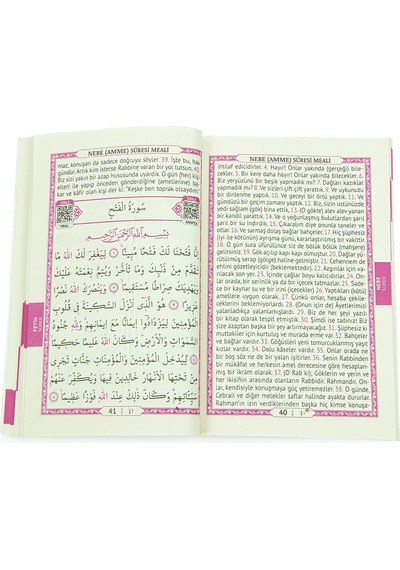 NEBE (AMME) SÛRESİ MEALİ
ihtilaf edicidirler. 4. Hayır! Onlar yakında (gerçeği) bile-
cekler. 5. Bir kere daha hayır! Onlar yakında bilecekler. 6.
Biz yeryüzünü bir beşik yapmadık mı? 7. Dağları kazıklar
yapmadık mı? 8. Ve sizleri çift çift yarattık. 9. Ve uykunuzu
bir dinlenme yaptık. 10. Ve geceyi bir örtü yaptık. 11. Ve
gündüzü bir geçim zamanı yaptık. 12. Biz, sizin üstünüzde
yedi sağlam (gök) bina ettik. 13. (O gökte) alev alev yanan
bir kandil yarattık. 14. Ve o yoğunlaşmış bulutlardan şarıl
şarıl bir su indirdik. 15. Çıkaralım diye onunla taneler ve
otlar. 16. Ve sarmaş dolaş bağlar bahçeler. 17. Hiç şüphesiz
(iyi ile kötünün) ayrışma günü, kararlaştırılmış bir vakittir.
18. O gün sura üfürülünce siz de bölük bölük (mahşere)
gelirsiniz. 19. Gök açılıp kapı kapı olmuştur. 20. Dağlar yü-
rütülmüş serap (gölge) haline gelmiştir. 21. Cehennem de
ehlini gözetleyicidir (beklemektedir). 22. Azgınlar için va-
rılacak son yer. 23. Onlar orada devirlerce kalacaklar. 24.
Orada, bir serinlik ya da bir içecek tatmazlar. 25. Sade-
ce bir kaynar su ve bir irini (içecekler) 26. Yaptıkları (kötü)
amellere uygun olarak. 27. Çünkü onlar, hesaba çekile-
ceklerini beklemiyorlardı. 28. (Onun için de) Ayetlerimizi
yalanladıkça yalanlamışlardı. 29. Biz de her şeyi yazılı
bir kitap olarak kaydetmişizdir. 30. Şimdi ise tadınız! Biz
size azaptan başka bir şey artırmayacağız. 31. Şüphesiz ki
muttakiler için kurtuluş ve murada erme var. 32. Bahçeler
ve bağlar vardır. 33. Göğüsleri yeni tomurcuklanmış yaşıt
kızlar vardır. 34. Dolu kâseler vardır. 35. Onlar orada ne
bir boş söz ne de bir yalan işitirler. 36. Senin Rabbinden
bir mükâfat ve herkesin amel derecesine göre hesaplan-
mış bir ikram olarak. 37. (O Rab ki); Göklerin ve yerin ve
her ikisinin arasında olanların Rabbidir. Rahmandır. On-
lar, kendisiyle konuşmaya güç yetiremezler. 38. O günde,
Cebrail ve diğer melekler saflar halinde ayakta dururlar.
Rahman'ın izin verdiklerinden başka hiç kimse konuşa-
40 ٤٠
NEBE
SÛRESİ
NEBE (AMME) SÛRESİ MEALİ
maz, konuşan da sadece doğruyu söyler. 39. İşte bu, hak
gündür. Artık kim isterse Rabbine varan bir yol tutsun. 40.
Biz sizi yakın bir azap hususunda uyardık. O gün (her) kişi,
elleri ile yapıp önceden gönderdiğine (amellerine) ba-
kar ve kâfir olan kişi der ki: "Keşke ben toprak olsaydım."
سُورَةُ الْفَتْحِ
بِسْمِ اللّٰهِ الرَّحْمٰنِ الرَّحِيمِ
اِنَّا فَتَحْنَا لَكَ فَتْحًا مُبِينًا ﴿١﴾ لِيَغْفِرَ لَكَ اللّٰهُ مَا
تَقَدَّمَ مِنْ ذَنْبِكَ وَمَا تَاَخَّرَ وَيُتِمَّ نِعْمَتَهُ عَلَيْكَ
وَيَهْدِيَكَ صِرَاطًا مُسْتَقِيمًا ﴿٢﴾ وَيَنْصُرَكَ اللّٰهُ نَصْرًا
عَزِيزًا ﴿٣﴾ هُوَ الَّذِي اَنْزَلَ السَّكِينَةَ فِي قُلُوبِ
الْمُؤْمِنِينَ لِيَزْدَادُوا اِيمَانًا مَعَ اِيمَانِهِمْ وَلِلّٰهِ جُنُودُ
السَّمٰوَاتِ وَالْاَرْضِ وَكَانَ اللّٰهُ عَلِيمًا حَكِيمًا
﴿٤﴾ لِيُدْخِلَ الْمُؤْمِنِينَ وَالْمُؤْمِنَاتِ جَنَّاتٍ تَجْرِي
مِنْ تَحْتِهَا الْاَنْهَارُ خَالِدِينَ فِيهَا وَيُكَفِّرَ عَنْهُمْ
سَيِّئَاتِهِمْ وَكَانَ ذٰلِكَ عِنْدَ اللّٰهِ فَوْزًا عَظِيمًا ﴿٥﴾
41 ٤١
FETİH
SÛRESİ